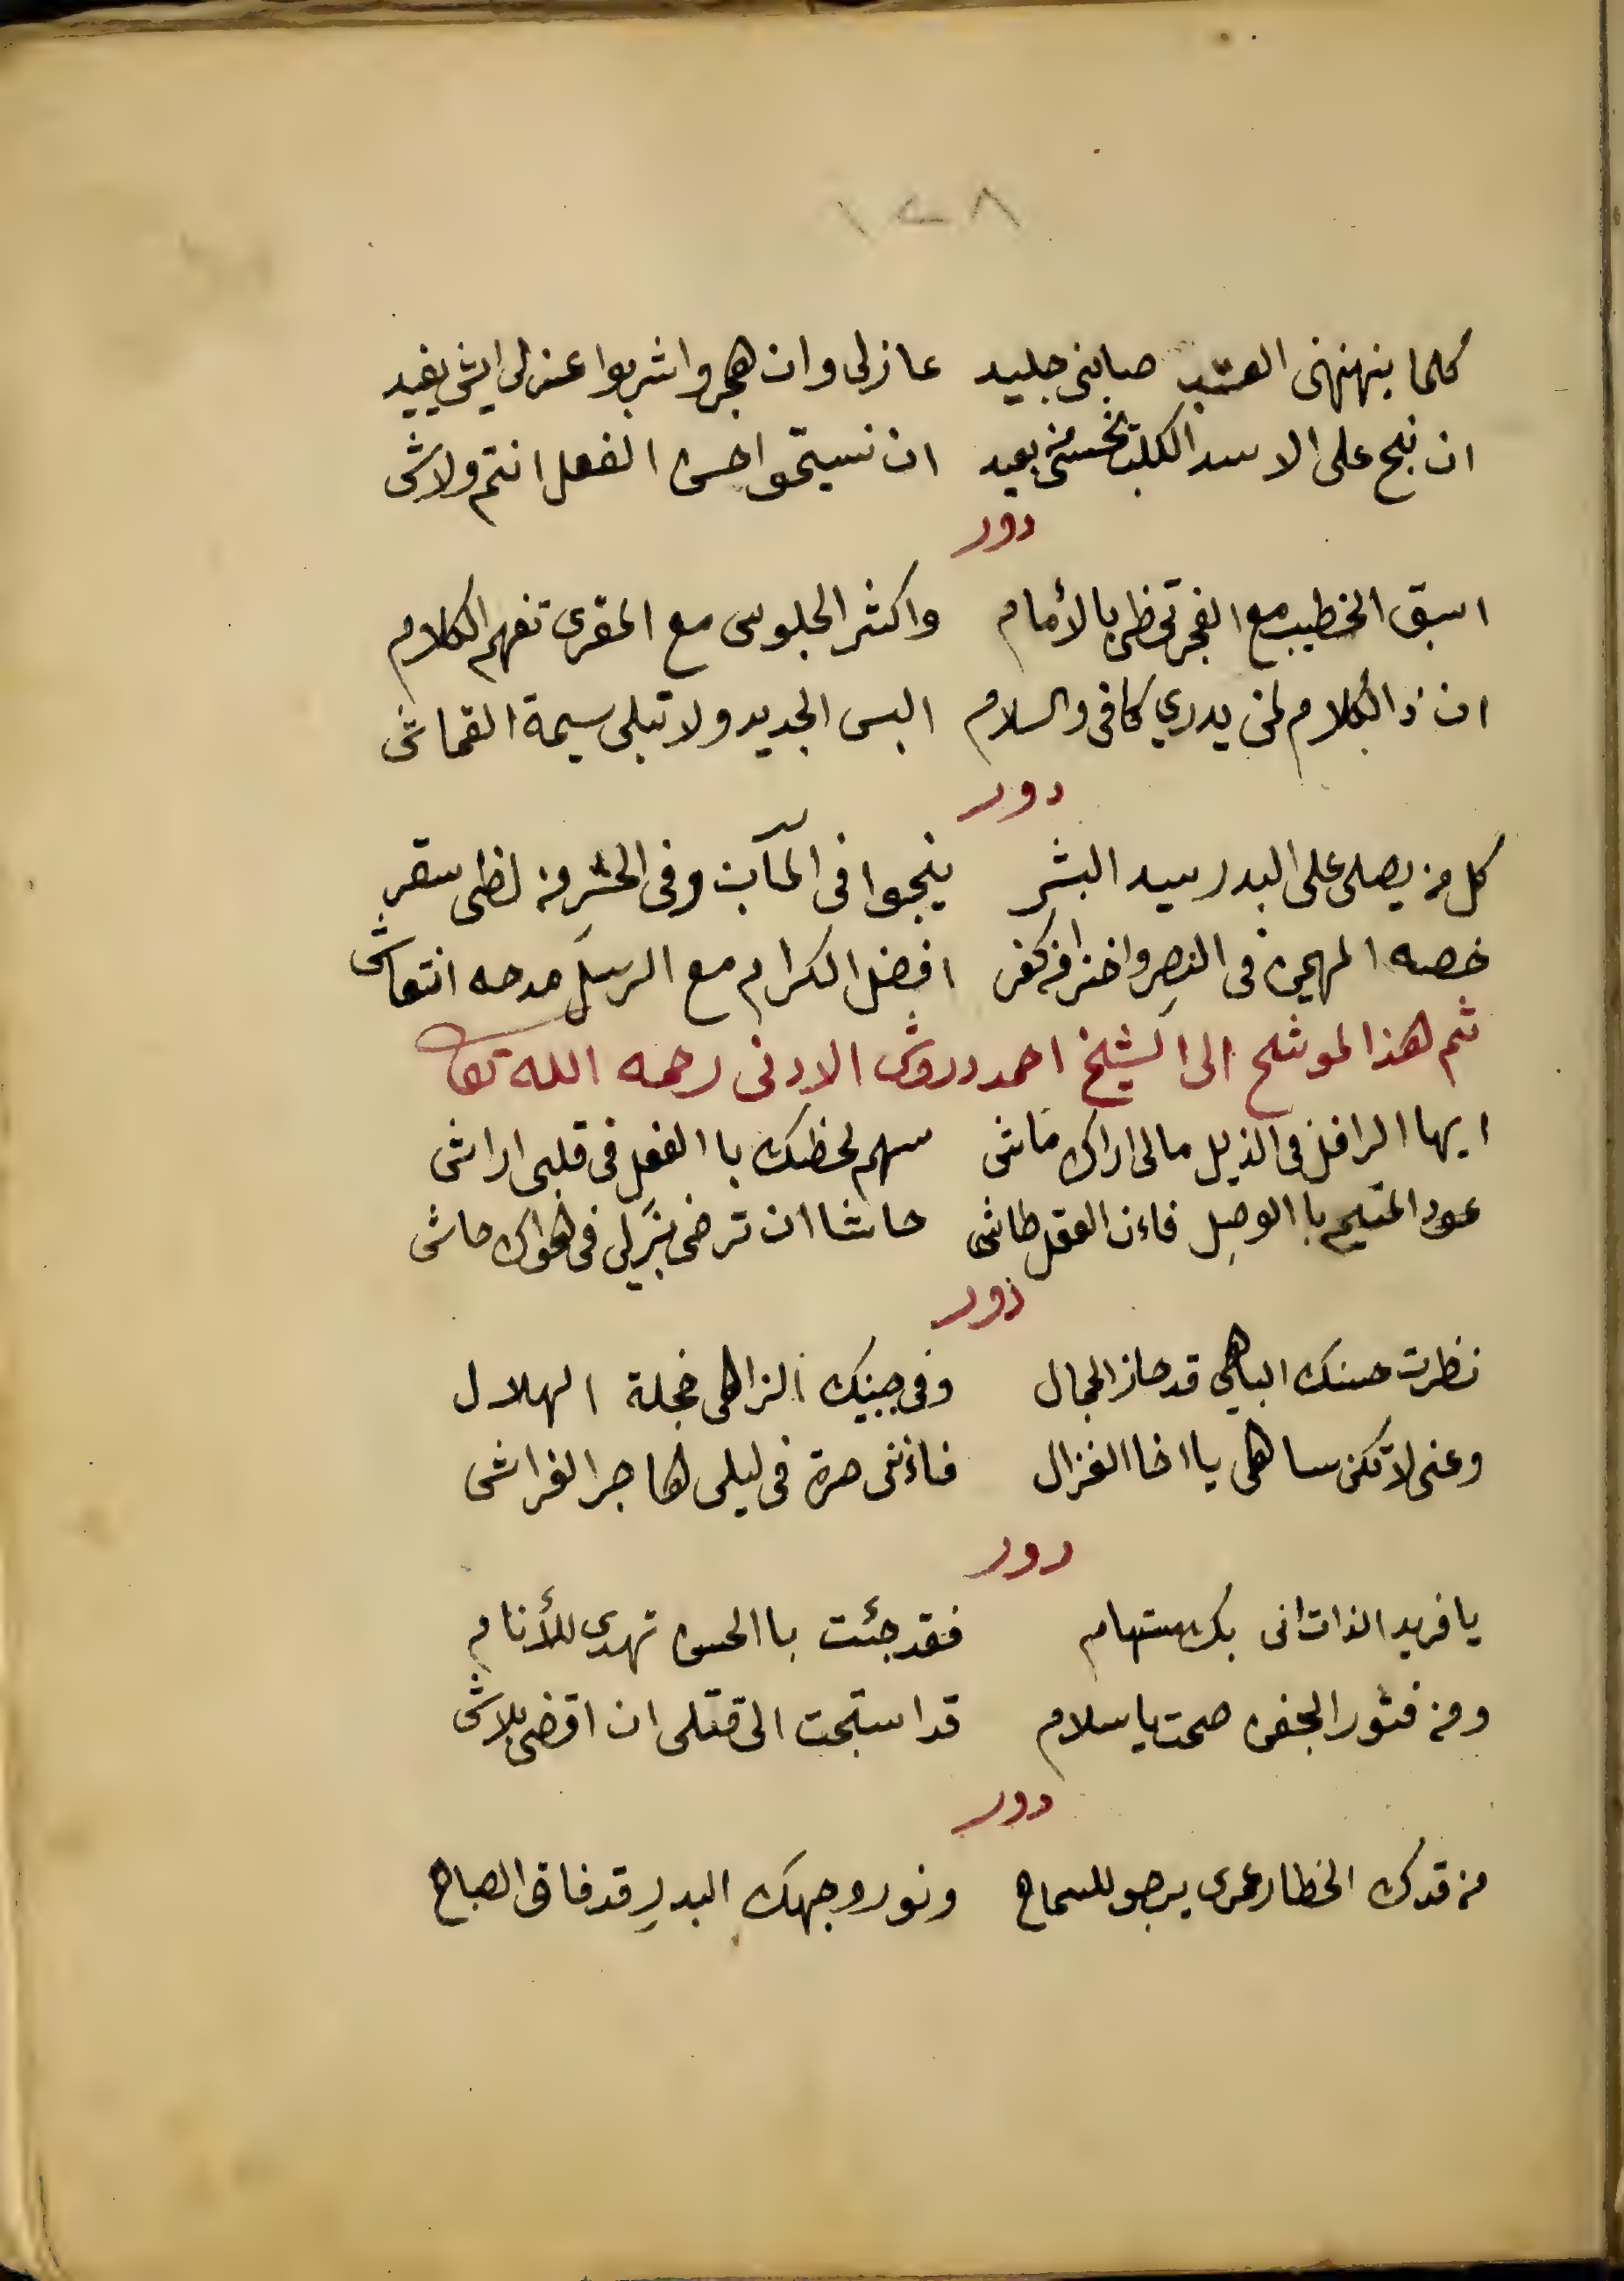 ١٤٨
كلما ينهنهنى العتب صابنى جليد عازلى وان هجروا شربوا عندلى ايش يفيد
ان نبح على الاسد الكلب من بعيد ان نسيتموا حسن الفعل انتم ولاش
دور
اسبق الخطيب مع الفجر تحظى بالأمام واكثر الجلوس مع المقرى تفهم الكلام
ان ذا الكلام لمن يدري كافى والسلام البس الجديد ولا تبلى سيمة القماش
دور
كل من يصلى على البدر سيد البشر ينجوا فى المآب وفى الحشر من لظى سقر
خصه المهيمن فى النصر واخزا من كفر افضل الكرام مع الرسل مدحه انتعاش
ثم هذا الموشح الى الشيخ احمد دروش الادنى رحمه الله تعا
ايها الرافل فى الذيل مالى اراك ماشى سهم لحظك با الفعل فى قلبى اراش
عود المتيم با الوصل فاءن العقل طاش حاشا ان ترضى بنزلى فى هواك حاش
دور
نظرت حسنك الباهي قد حاز الجمال وفى جبينك الزاهى خجلة الهلال
وعنى لا تكن ساهى يا اخا الغزال فاءننى مرة فى ليلى هاجر الفراش
دور
يا فريد الذات انى بك مستهام فقد جئت با الحسن تهدى للأنام
ومن فتور الجفن صحت يا سلام قد استبحت الى قتلى ان اقضى بلاش
دور
من قدك الخطار عمرى يرجو للسماح ونور وجهك البدر قد فاق الصباح